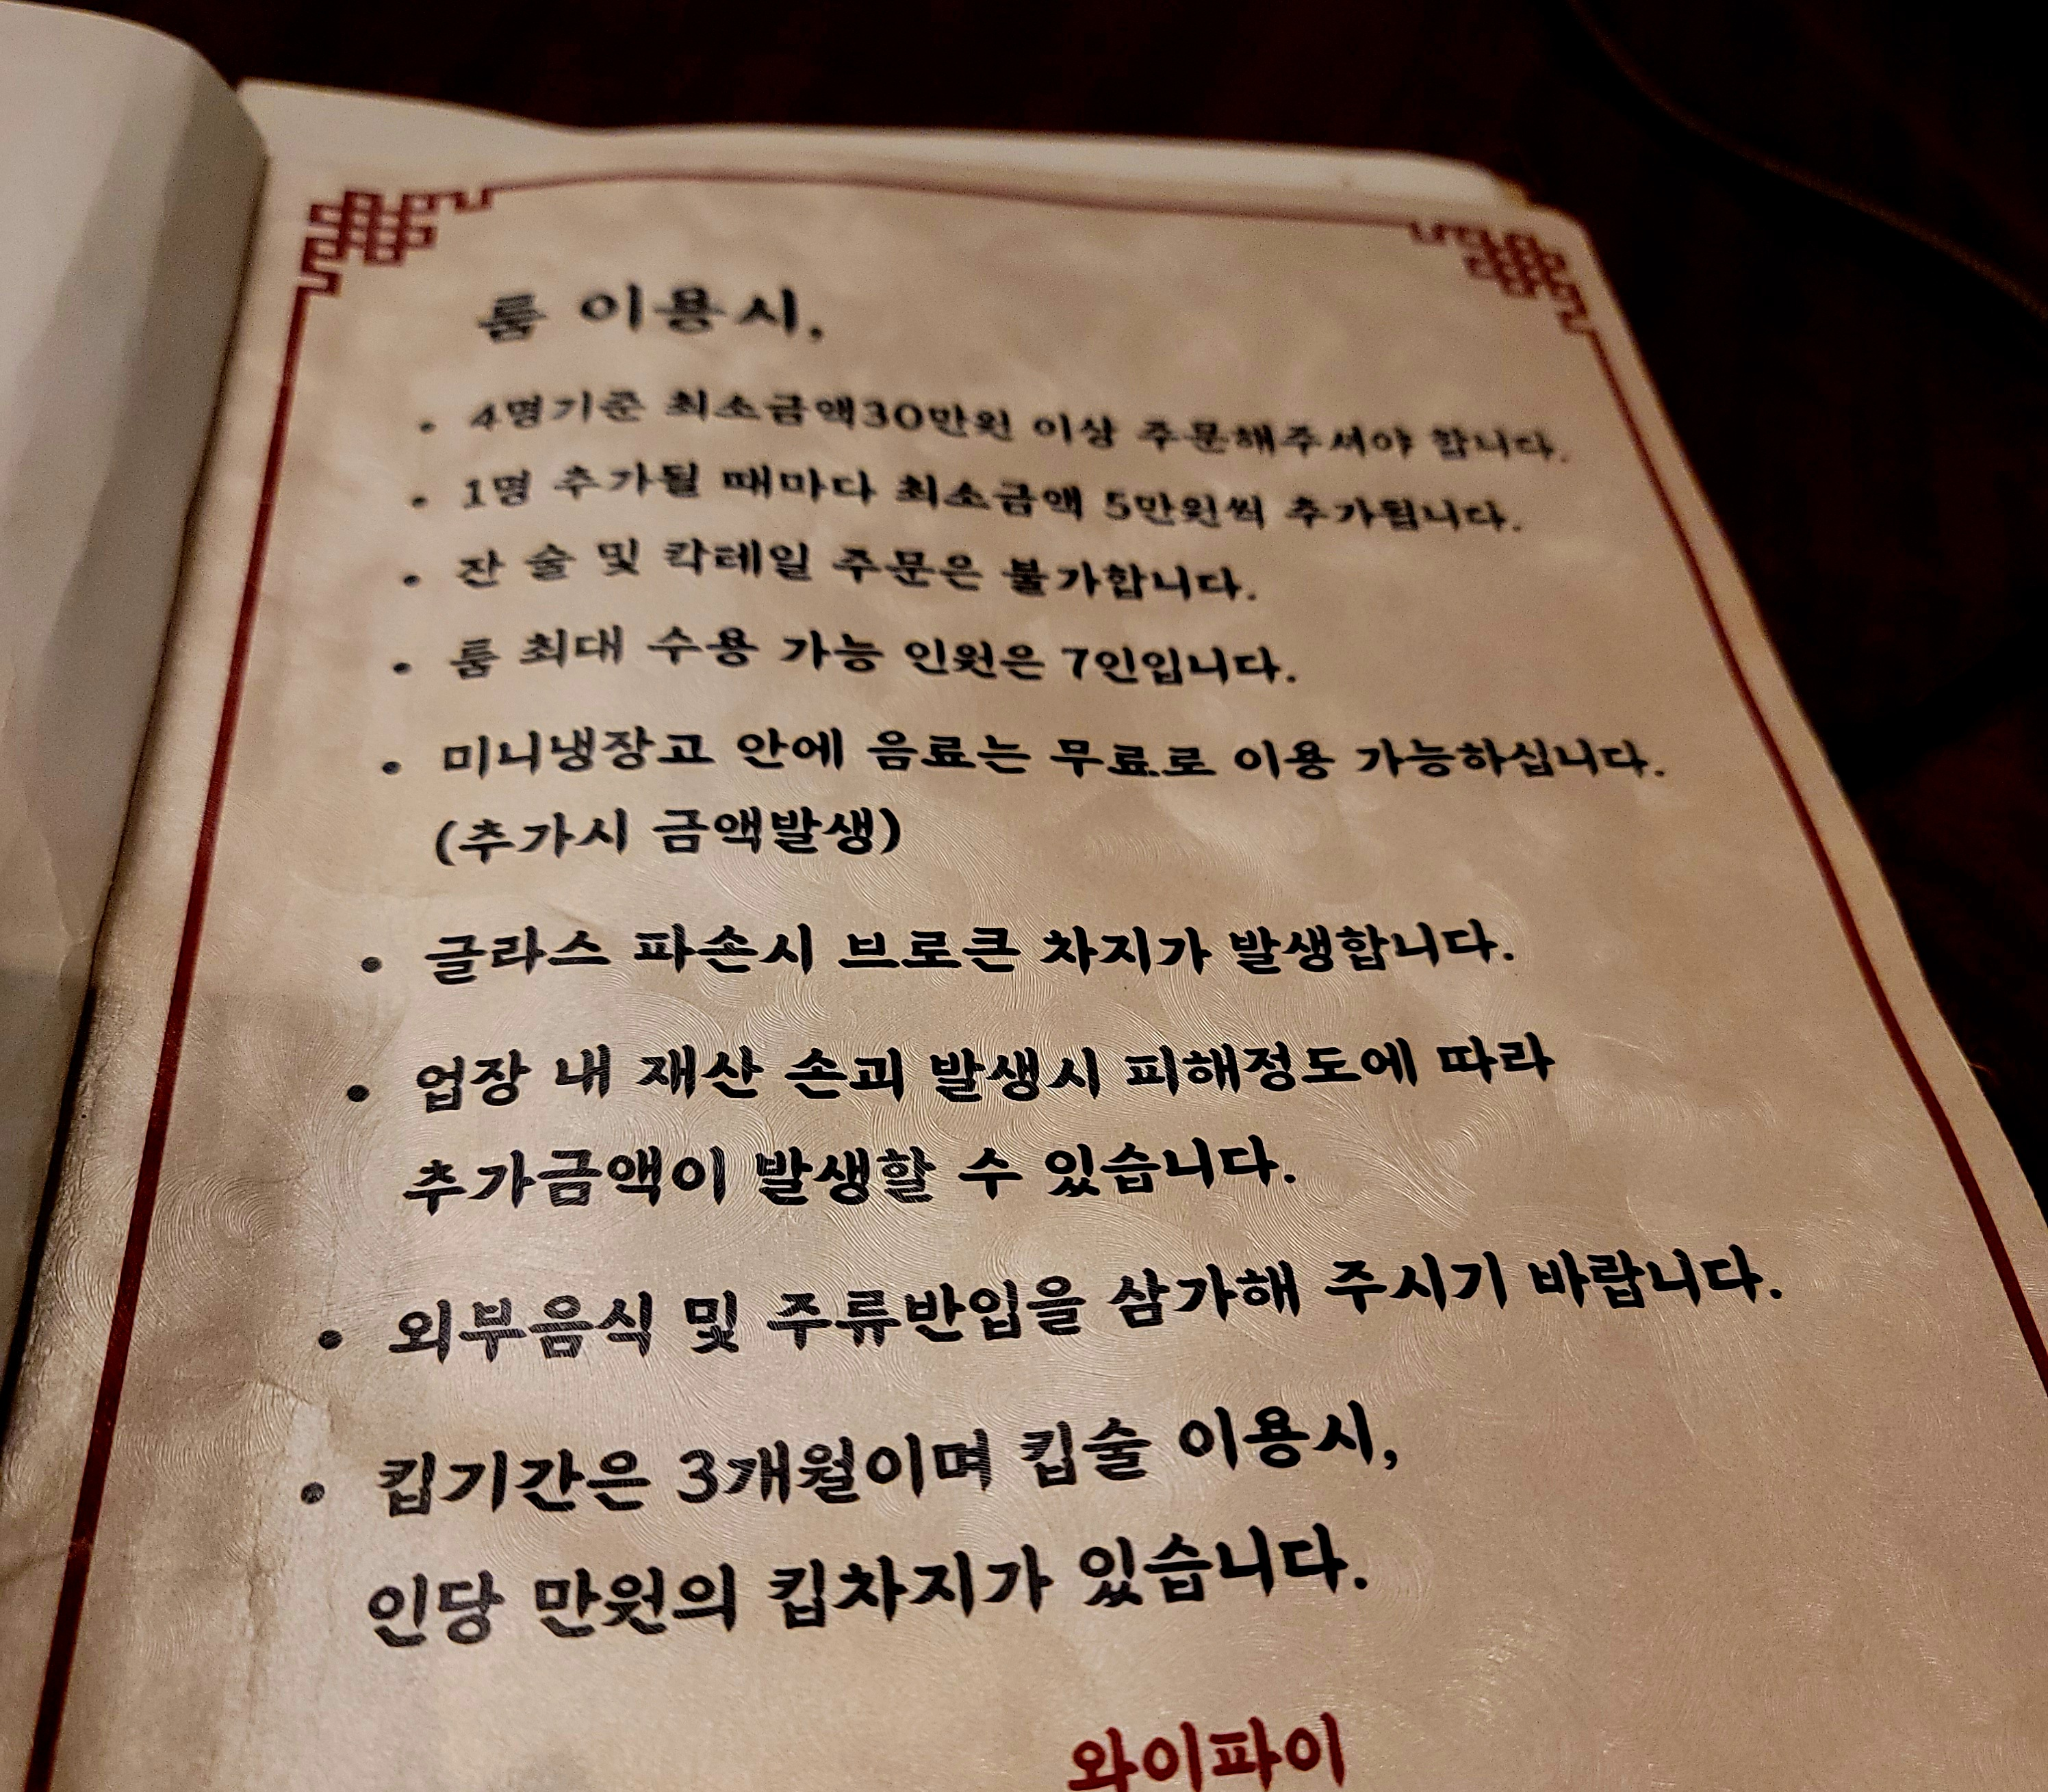 룸 이용시,
• 4명기준 최소금액30만원 이상 주문해주셔야 합니다.
• 1명 추가될 때마다 최소금액 5만원씩 추가됩니다.
• 잔 술 및 칵테일 주문은 불가합니다.
• 룸 최대 수용 가능 인원은 7인입니다.
• 미니냉장고 안에 음료는 무료로 이용 가능하십니다.
(추가시 금액발생)
• 글라스 파손시 브로큰 차지가 발생합니다.
• 업장 내 재산 손괴 발생시 피해정도에 따라
추가금액이 발생할 수 있습니다.
• 외부음식 및 주류반입을 삼가해 주시기 바랍니다.
• 킵기간은 3개월이며 킵술 이용시,
인당 만원의 킵차지가 있습니다.
와이파이